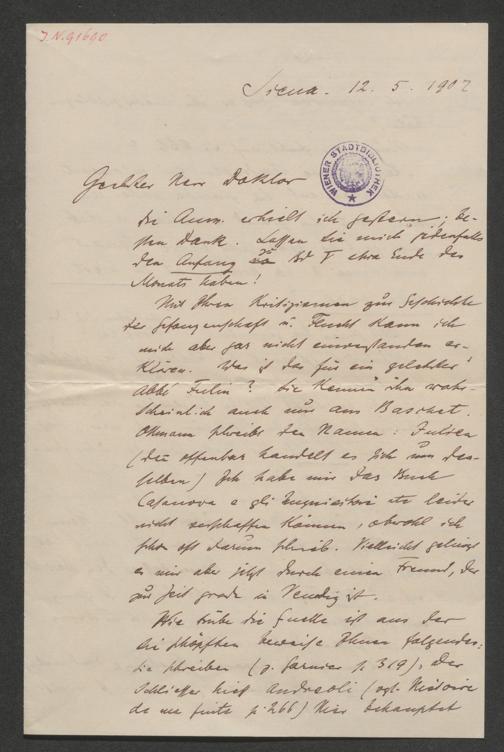 J.N. 91600
Siena. 12. 5. 1907
WIENER STADTBIBLIOTHEK
Geehrter Herr Doktor
Die Anm. erhielt ich gestern; be-
sten Dank. Lassen Sie mich jedenfalls
den Anfang zu Bd V etwa Ende des
Monats haben!
Mit Ihren Kritizismen zur Geschichte
der Gefangenschaft u. Flucht kann ich
mich aber gar nicht einverstanden er-
klären. Was ist das für ein gelehrter
Abbé Fulin? Sie kennen ihn wahr-
scheinlich auch nur aus Baschet.
Ottmann schreibt den Namen: Julien
(denn offenbar handelt es sich um den-
selben) Ich habe mir das Buch
Casanova e gli Inquisitori etc leider
nicht verschaffen können, obwohl ich
schon oft darum schrieb. Vielleicht gelingt
es mir aber jetzt durch einen Freund, der
zur Zeit grade in Venedig ist.
Wie trübe die Quelle ist aus der
Sie schöpften beweise Ihnen folgendes:
Sie schreiben (g. Garnier p. 319), der
Schliesser hiess Andreoli (vgl. Histoire
de ma fuite p. 266) Hier behauptet